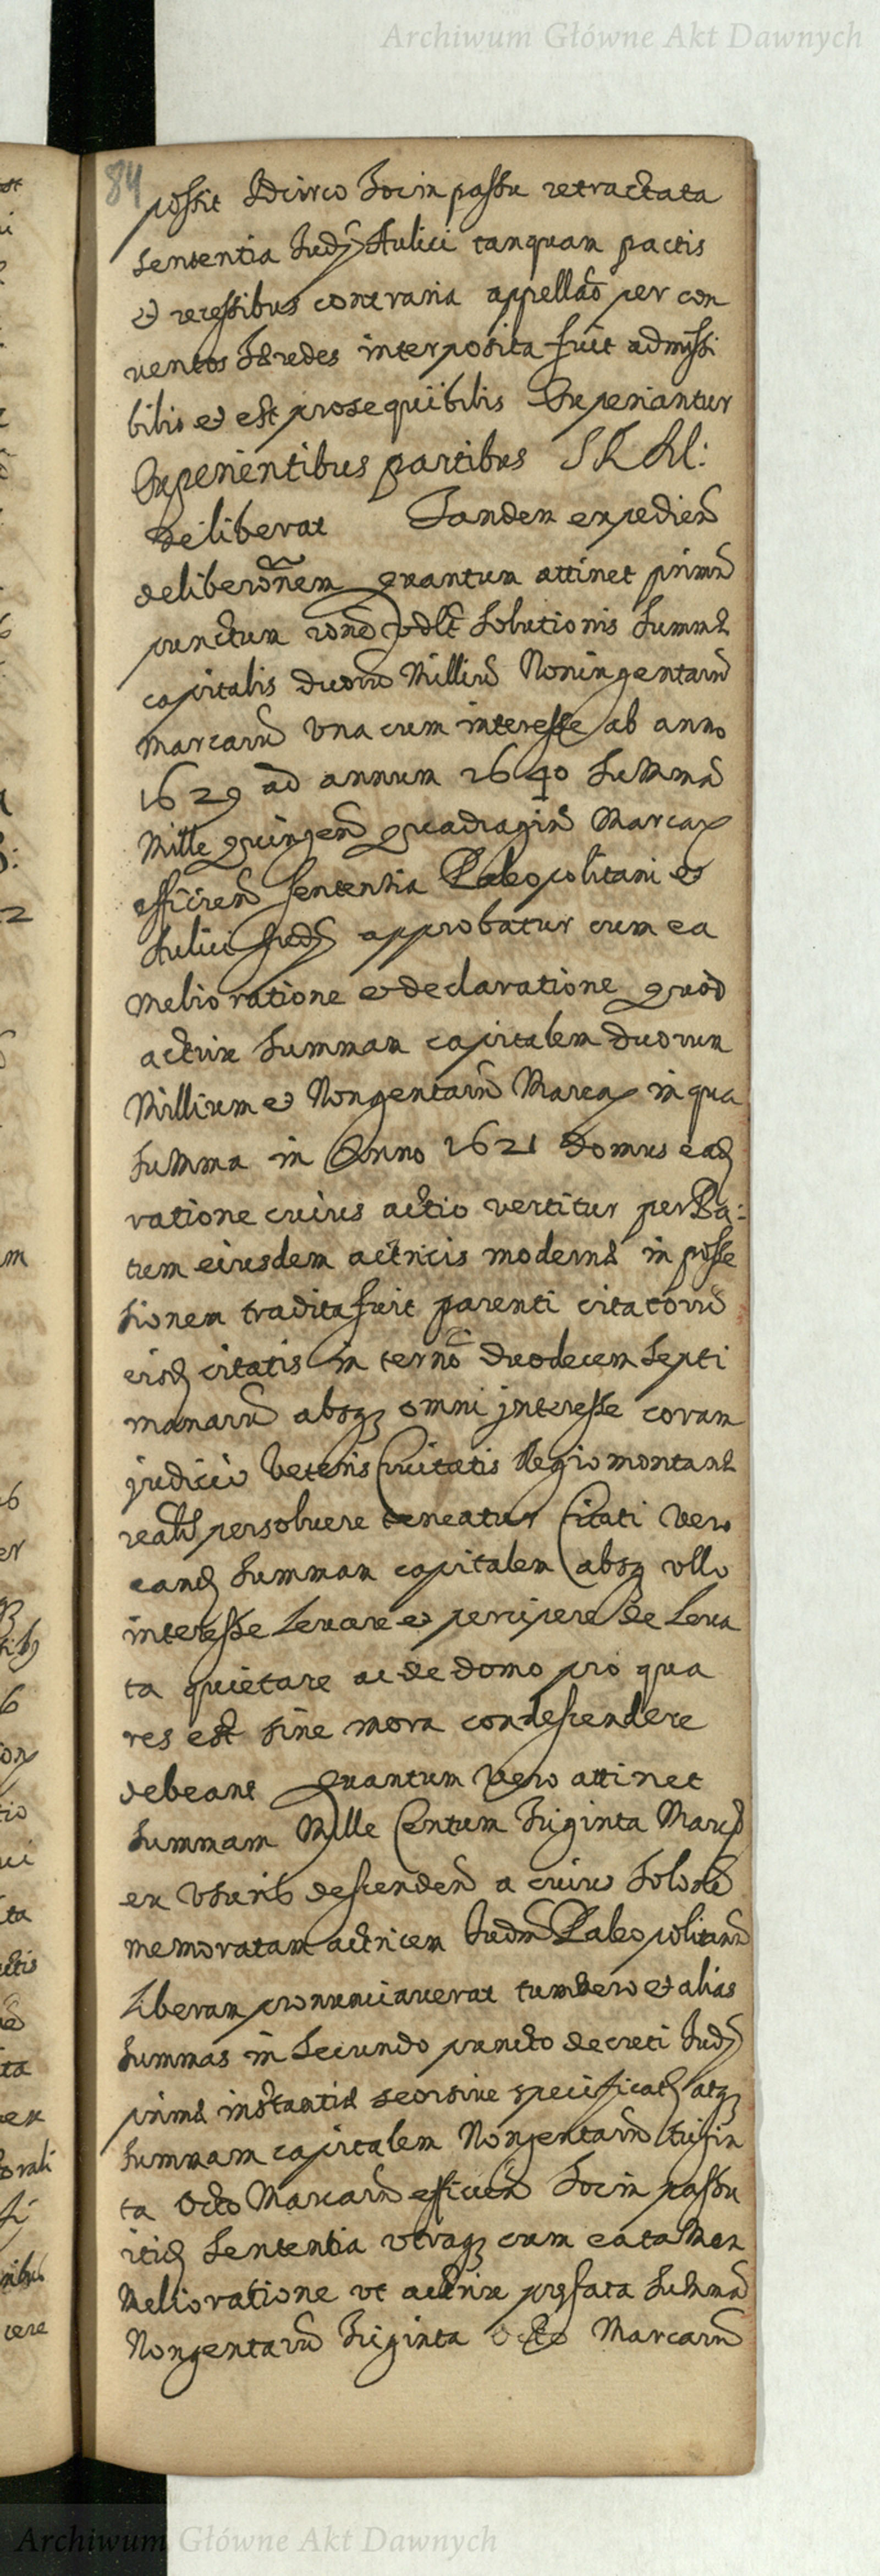 Archiwum Główne Akt Dawnych
84
possit Idcirco hoc in passu retractata
sententia Judÿ Aulici tanquam pactis
et recessibus contraria appellaõ per con
ventos Hæredes interposita fuit admissi
bilis et est prosequibilis Experiantur
Experientibus partibus S R M:
deliberat Tandem expedien
deliberõnem quantum attinet primũ
punctum rõne solutionis summæ
capitalis duorũ Milliũ Noningentarũ
Marcarũ vna cum interesse ab anno
1629 ad annum 1640 summã
Mille quingen quadragin Marcar
efficien sententia Paleopolitani et
Aulici Judÿ approbatur cum ea
melioratione et declaratione quod
actrix summam capitalem duorum
Millium et Nongentarũ Marcar in qua
summa in Anno 1621 domus eadꝫ
ratione cuius actio vertitur per Pa:
trem eiusdem actricis modernæ in posse
sionem tradita fuit parenti citatorũ
eisdꝫ citatis in termõ duodecem septi
manarũ absqꝫ omni jnteresse coram
judicio Veteris Civitatis Regiomontanæ
realr persolvere teneatur Citati vero
eandꝫ summam capitalem absqꝫ vllo
interesse Levare et percipere de Leva
ta quietare ac de domo pro qua
res est sine mora condescendere
debeant quantum vero attinet
summam Mille Centum Triginta Marcar
ex vsuris descenden a cuius Solõne
memoratam actricem Judm Paleopolitanũ
Liberam pronunciaverat tum vero et alias
summas in secundo puncto decreti Judÿ
primæ instantiæ seorsive specificatꝫ atqꝫ
summam capitalem Nongentarũ trigin
ta Octo Marcarũ efficien hoc in passu
itidꝫ sententia vtraqꝫ cum ea tamen
Melioratione vt actrix præfata summã
Nongentarũ Triginta Octo Marcarũ
Archiwum Główne Akt Dawnych